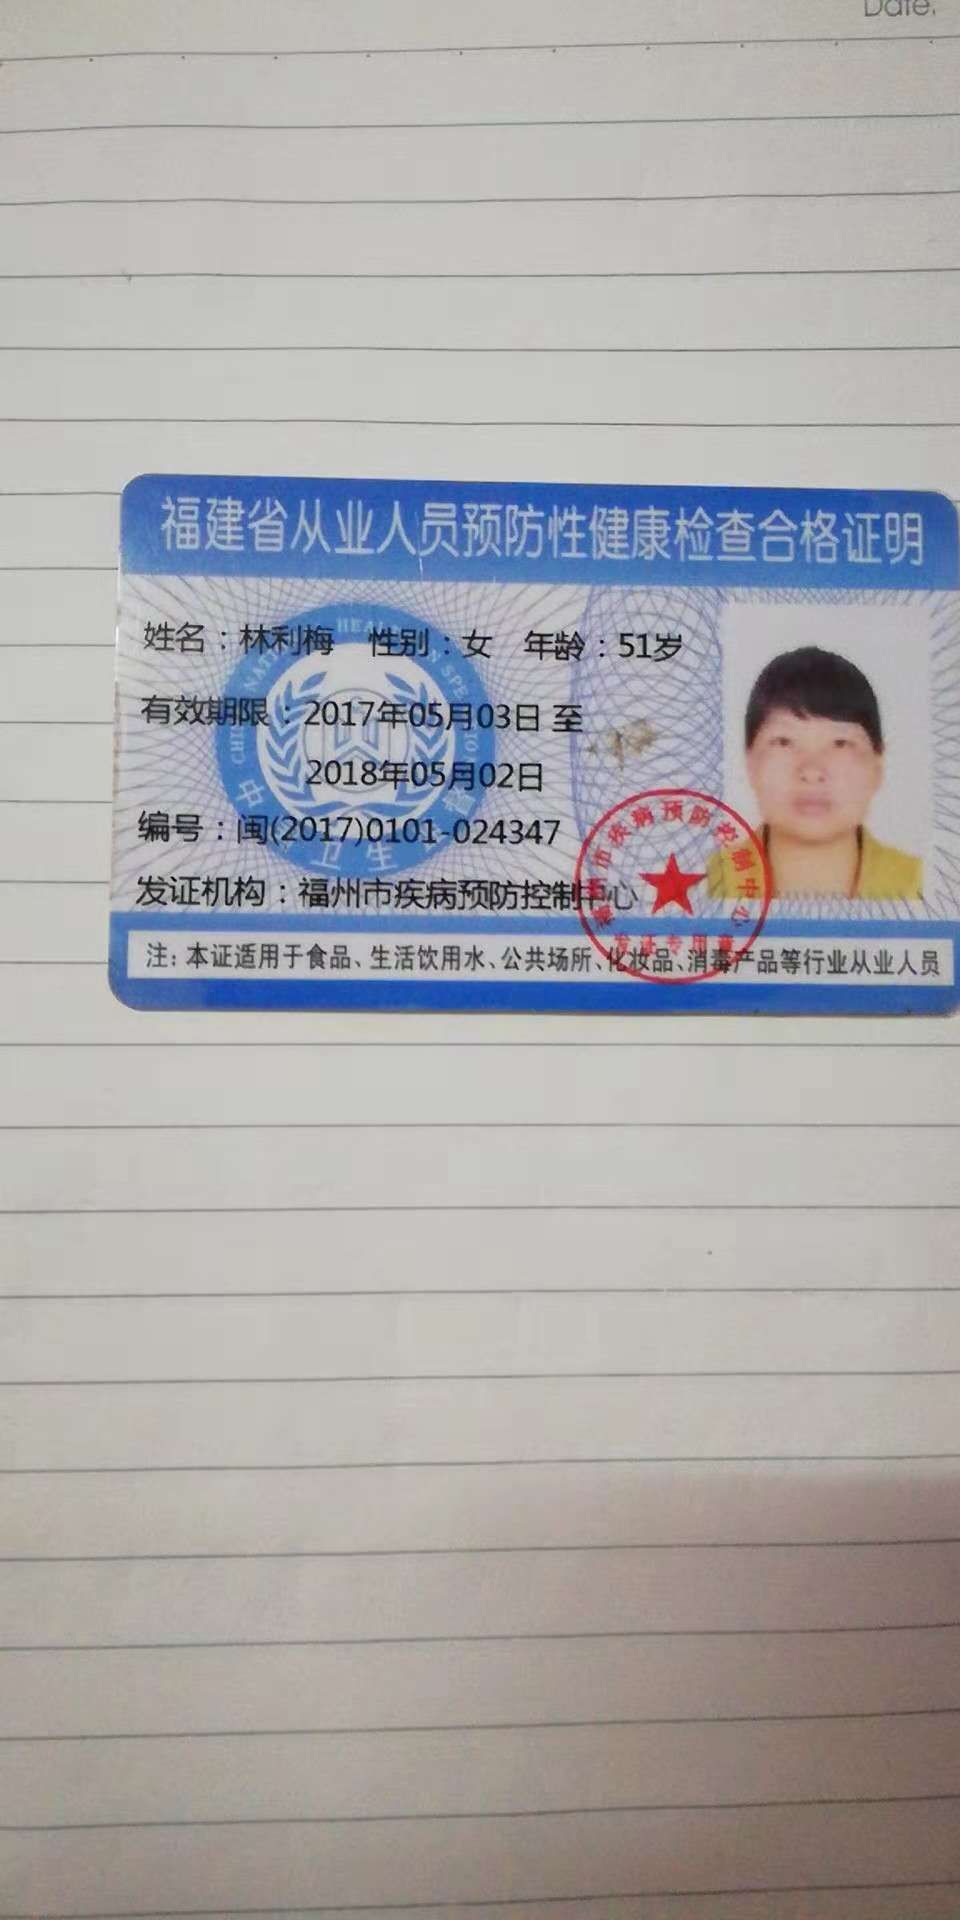 Date.
福建省从业人员预防性健康检查合格证明
姓名：林利梅 性别：女 年龄：51岁
有效期限：2017年05月03日 至
2018年05月02日
编号：闽(2017)0101-024347
发证机构：福州市疾病预防控制中心
中 卫生
市疾病预防控制中心
发证专用章
注：本证适用于食品、生活饮用水、公共场所、化妆品、消毒产品等行业从业人员